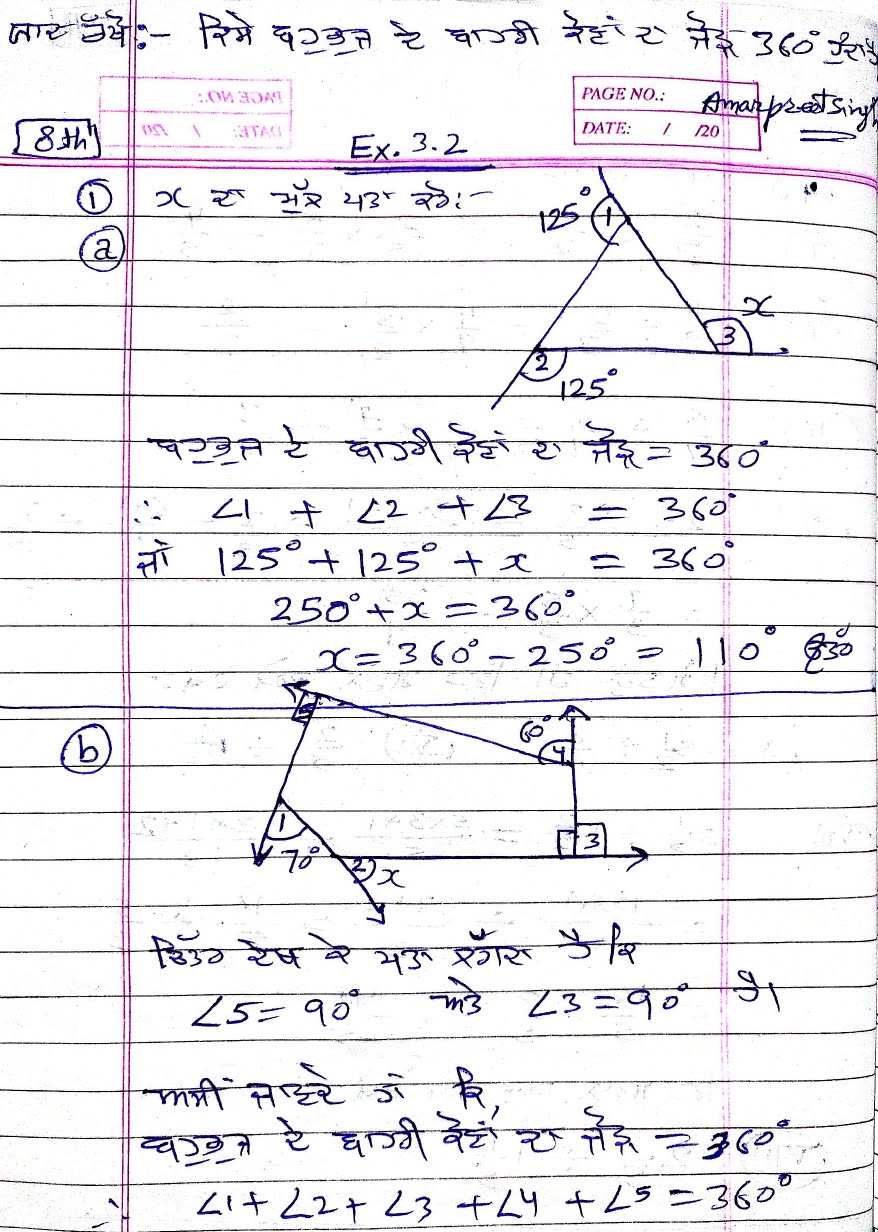 ਯਾਦ ਰੱਖੋ:- ਕਿਸੇ ਬਹੁਭੁਜ ਦੇ ਬਾਹਰੀ ਕੋਣਾਂ ਦਾ ਜੋੜ 360° ਹੁੰਦਾ ਹੈ
PAGE NO.:
DATE: / /20
Amarpreet Singh
8th
Ex. 3.2
① x ਦਾ ਮੁੱਲ ਪਤਾ ਕਰੋ:-
ⓐ
125° 1
x
3
2
125°
ਬਹੁਭੁਜ ਦੇ ਬਾਹਰੀ ਕੋਣਾਂ ਦਾ ਜੋੜ = 360°
∴ ∠1 + ∠2 + ∠3 = 360°
ਜਾਂ 125° + 125° + x = 360°
250° + x = 360°
x = 360° - 250° = 110° ਉੱਤਰ
ⓑ
5
60°
4
1
70°
2 x
3
ਚਿੱਤਰ ਦੇਖ ਕੇ ਪਤਾ ਲੱਗਦਾ ਹੈ ਕਿ
∠5 = 90° ਅਤੇ ∠3 = 90° ਹੈ।
ਅਸੀਂ ਜਾਣਦੇ ਹਾਂ ਕਿ,
ਬਹੁਭੁਜ ਦੇ ਬਾਹਰੀ ਕੋਣਾਂ ਦਾ ਜੋੜ = 360°
∴ ∠1 + ∠2 + ∠3 + ∠4 + ∠5 = 360°